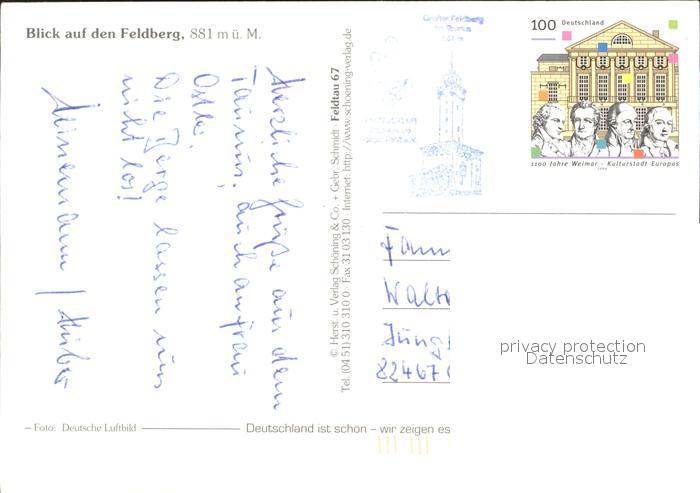 Blick auf den Feldberg, 881 m ü. M.
Herzliche Grüße aus dem
Taunus, auch an Frau
Oste.
Die Berge lassen uns
nicht los!
© Herst. u. Verlag Schöning & Co. + Gebr. Schmidt · Feldtau 67
Tel. (04 51) 310 310 0 · Fax 31 03 130 · Internet: http://www.schoening-verlag.de
Großer Feldberg
im Taunus
100 Deutschland
1100 Jahre Weimar - Kulturstadt Europas
1999
Fam
Walt
Jung
82467
privacy protection
Datenschutz
– Foto: Deutsche Luftbild
Deutschland ist schön – wir zeigen es